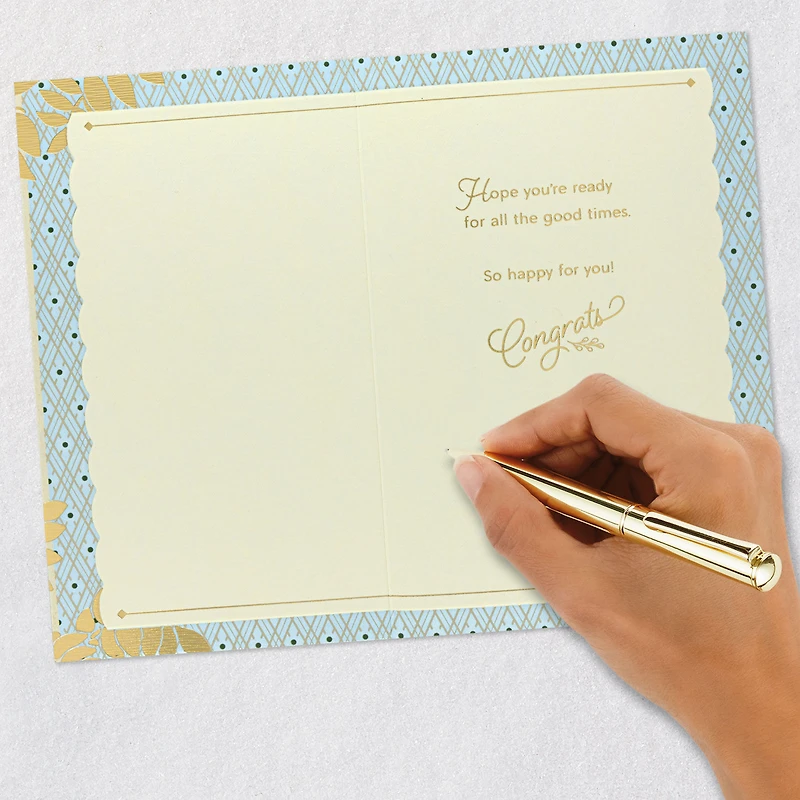 Hope you're ready
for all the good times.
So happy for you!
Congrats